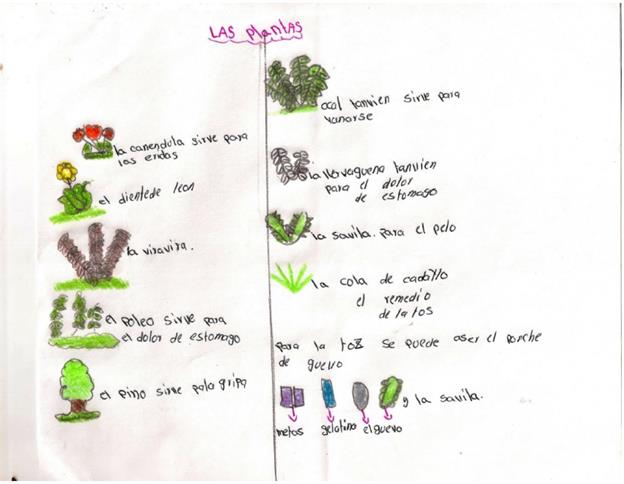 LAS plantas
la canendula sirve para
las eridas
el dientede leon
la viravira.
el Poleo sirve para
el dolor de estomago
el pino sirve pala gripa
ocal tanvien sirve para
vanarse
la llervaguena tanvien
para el dolor
de estomago
la savila. para el pelo
la cola de caballo
el remedio
de la tos
para la toz se puede aser el ponche
de guevo
y la savila.
metos gelatina el guevo